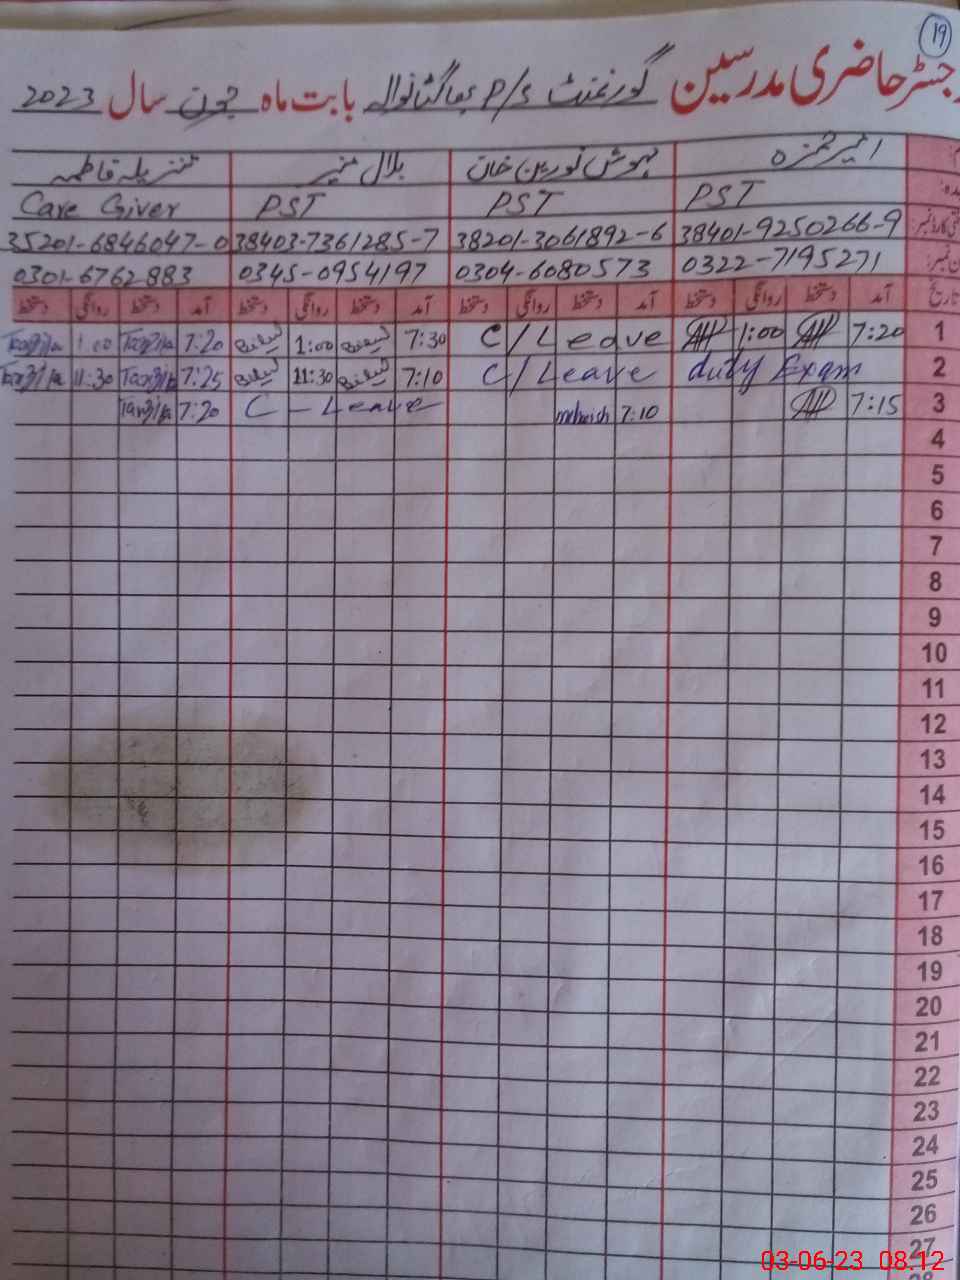 19
رجسٹر حاضری مدرسین گورنمنٹ P/S بھاگٹانوالہ بابت ماہ جون سال 2023
امیر حمزہ مہوش نورین خان بلال منیر تنزیلہ فاطمہ
PST PST PST Care Giver
38401-9250266-9 38201-3061892-6 38403-7361285-7 35201-6846047-0
0322-7195271 0304-6080573 0345-0954197 0301-6762883
تاریخ آمد دستخط روانگی دستخط آمد دستخط روانگی دستخط آمد دستخط روانگی دستخط آمد دستخط روانگی دستخط
1 7:20 1:00 C/Leave 7:30 1:00 7:20 Tanzila 1:00 Tanzila
2 duty Exam C/Leave 7:10 11:30 7:25 Tanzila 11:30 Tanzila
3 7:15 7:10 mehwish C-Leave 7:20 Tanzila
4
5
6
7
8
9
10
11
12
13
14
15
16
17
18
19
20
21
22
23
24
25
26
27
28
03-06-23 08:12